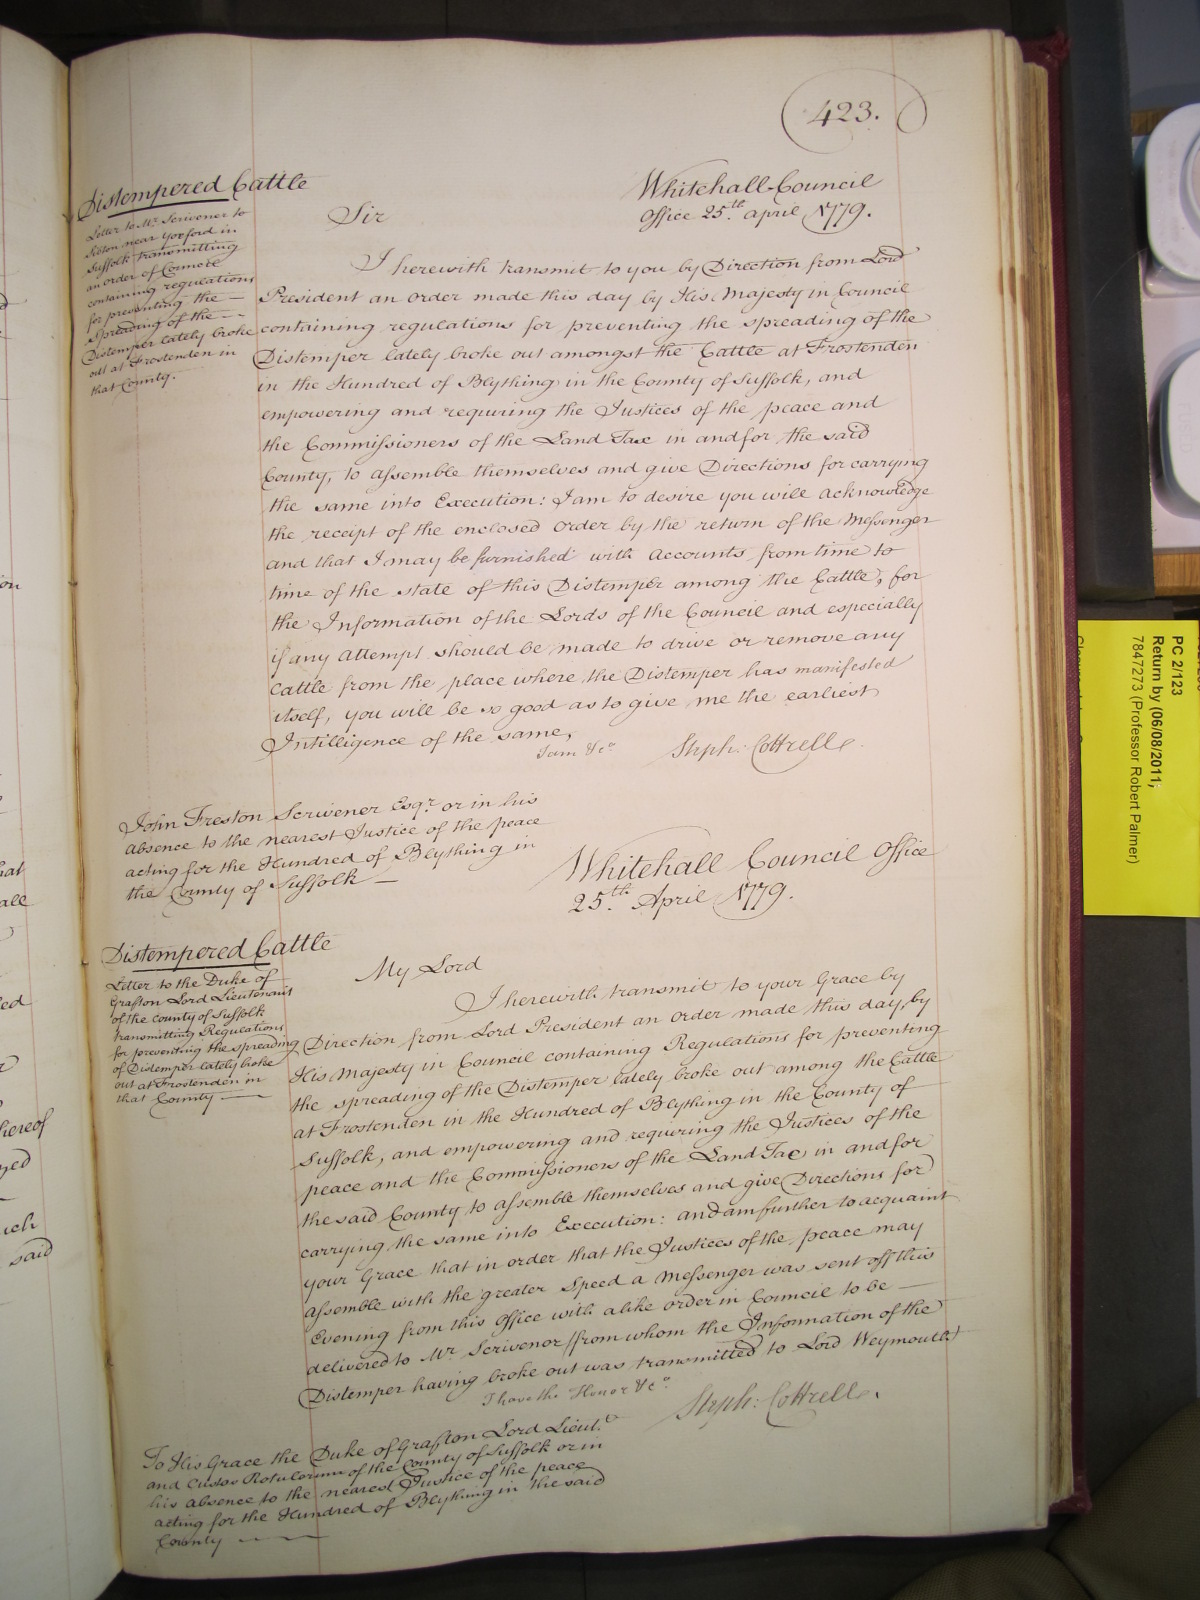 423.
Distempered Cattle
Letter to Mr. Scrivener to
Sibton near Yoxford in
Suffolk transmitting
an order of Council
containing regulations
for preventing the —
spreading of the —
Distemper lately broke
out at Frostenden in
that County.
Whitehall Council
Office 25.th april 1779.
Sir
I herewith transmit to you by Direction from Lord
President an order made this day by His Majesty in Council
containing regulations for preventing the spreading of the
Distemper lately broke out amongst the Cattle at Frostenden
in the Hundred of Blything in the County of Suffolk, and
empowering and requiring the Justices of the peace and
the Commissioners of the Land Tax in and for the said
County, to assemble themselves and give Directions for carrying
the same into Execution: I am to desire you will acknowledge
the receipt of the enclosed order by the return of the Messenger
and that I may be furnished with accounts from time to
time of the state of this Distemper among the Cattle, for
the Information of the Lords of the Council and especially
if any Attempt should be made to drive or remove any
Cattle from the place where the Distemper has manifested
itself, you will be so good as to give me the earliest
Intilligence of the same,
I am &c.a Steph: Cottrell.
John Freston Scrivener Esqr. or in his
absence to the nearest Justice of the peace
acting for the Hundred of Blything in
the County of Suffolk —
Whitehall Council Office
25.th April 1779.
Distempered Cattle
Letter to the Duke of
Grafton Lord Lieutenant
of the County of Suffolk
transmitting Regulations
for preventing the spreading
of Distemper lately broke
out at Frostenden in
that County —
My Lord
I herewith transmit to your Grace by
Direction from Lord President an order made this day, by
His Majesty in Council containing Regulations for preventing
the spreading of the Distemper lately broke out among the Cattle
at Frostenden in the Hundred of Blything in the County of —
Suffolk, and empowering and requiring the Justices of the
peace and the Commissioners of the Land Tax in and for
the said County to assemble themselves and give Directions for
carrying the same into Execution: and am further to acquaint
your Grace that in order that the Justices of the peace may
assemble with the greater speed a Messenger was sent off this
Evening from this Office with a like order in Council to be —
delivered to Mr. Scrivenor (from whom the Information of the
Distemper having broke out was transmitted to Lord Weymouth)
I have the Honor &c.a Steph: Cottrell.
To His Grace the Duke of Grafton Lord Lieut.t
and Custos Rotulorum of the County of Suffolk or in
his absence to the nearest Justice of the peace
acting for the Hundred of Blything in the said
County —
PC 2/123
Return by (06/08/2011;
7847273 (Professor Robert Palmer)